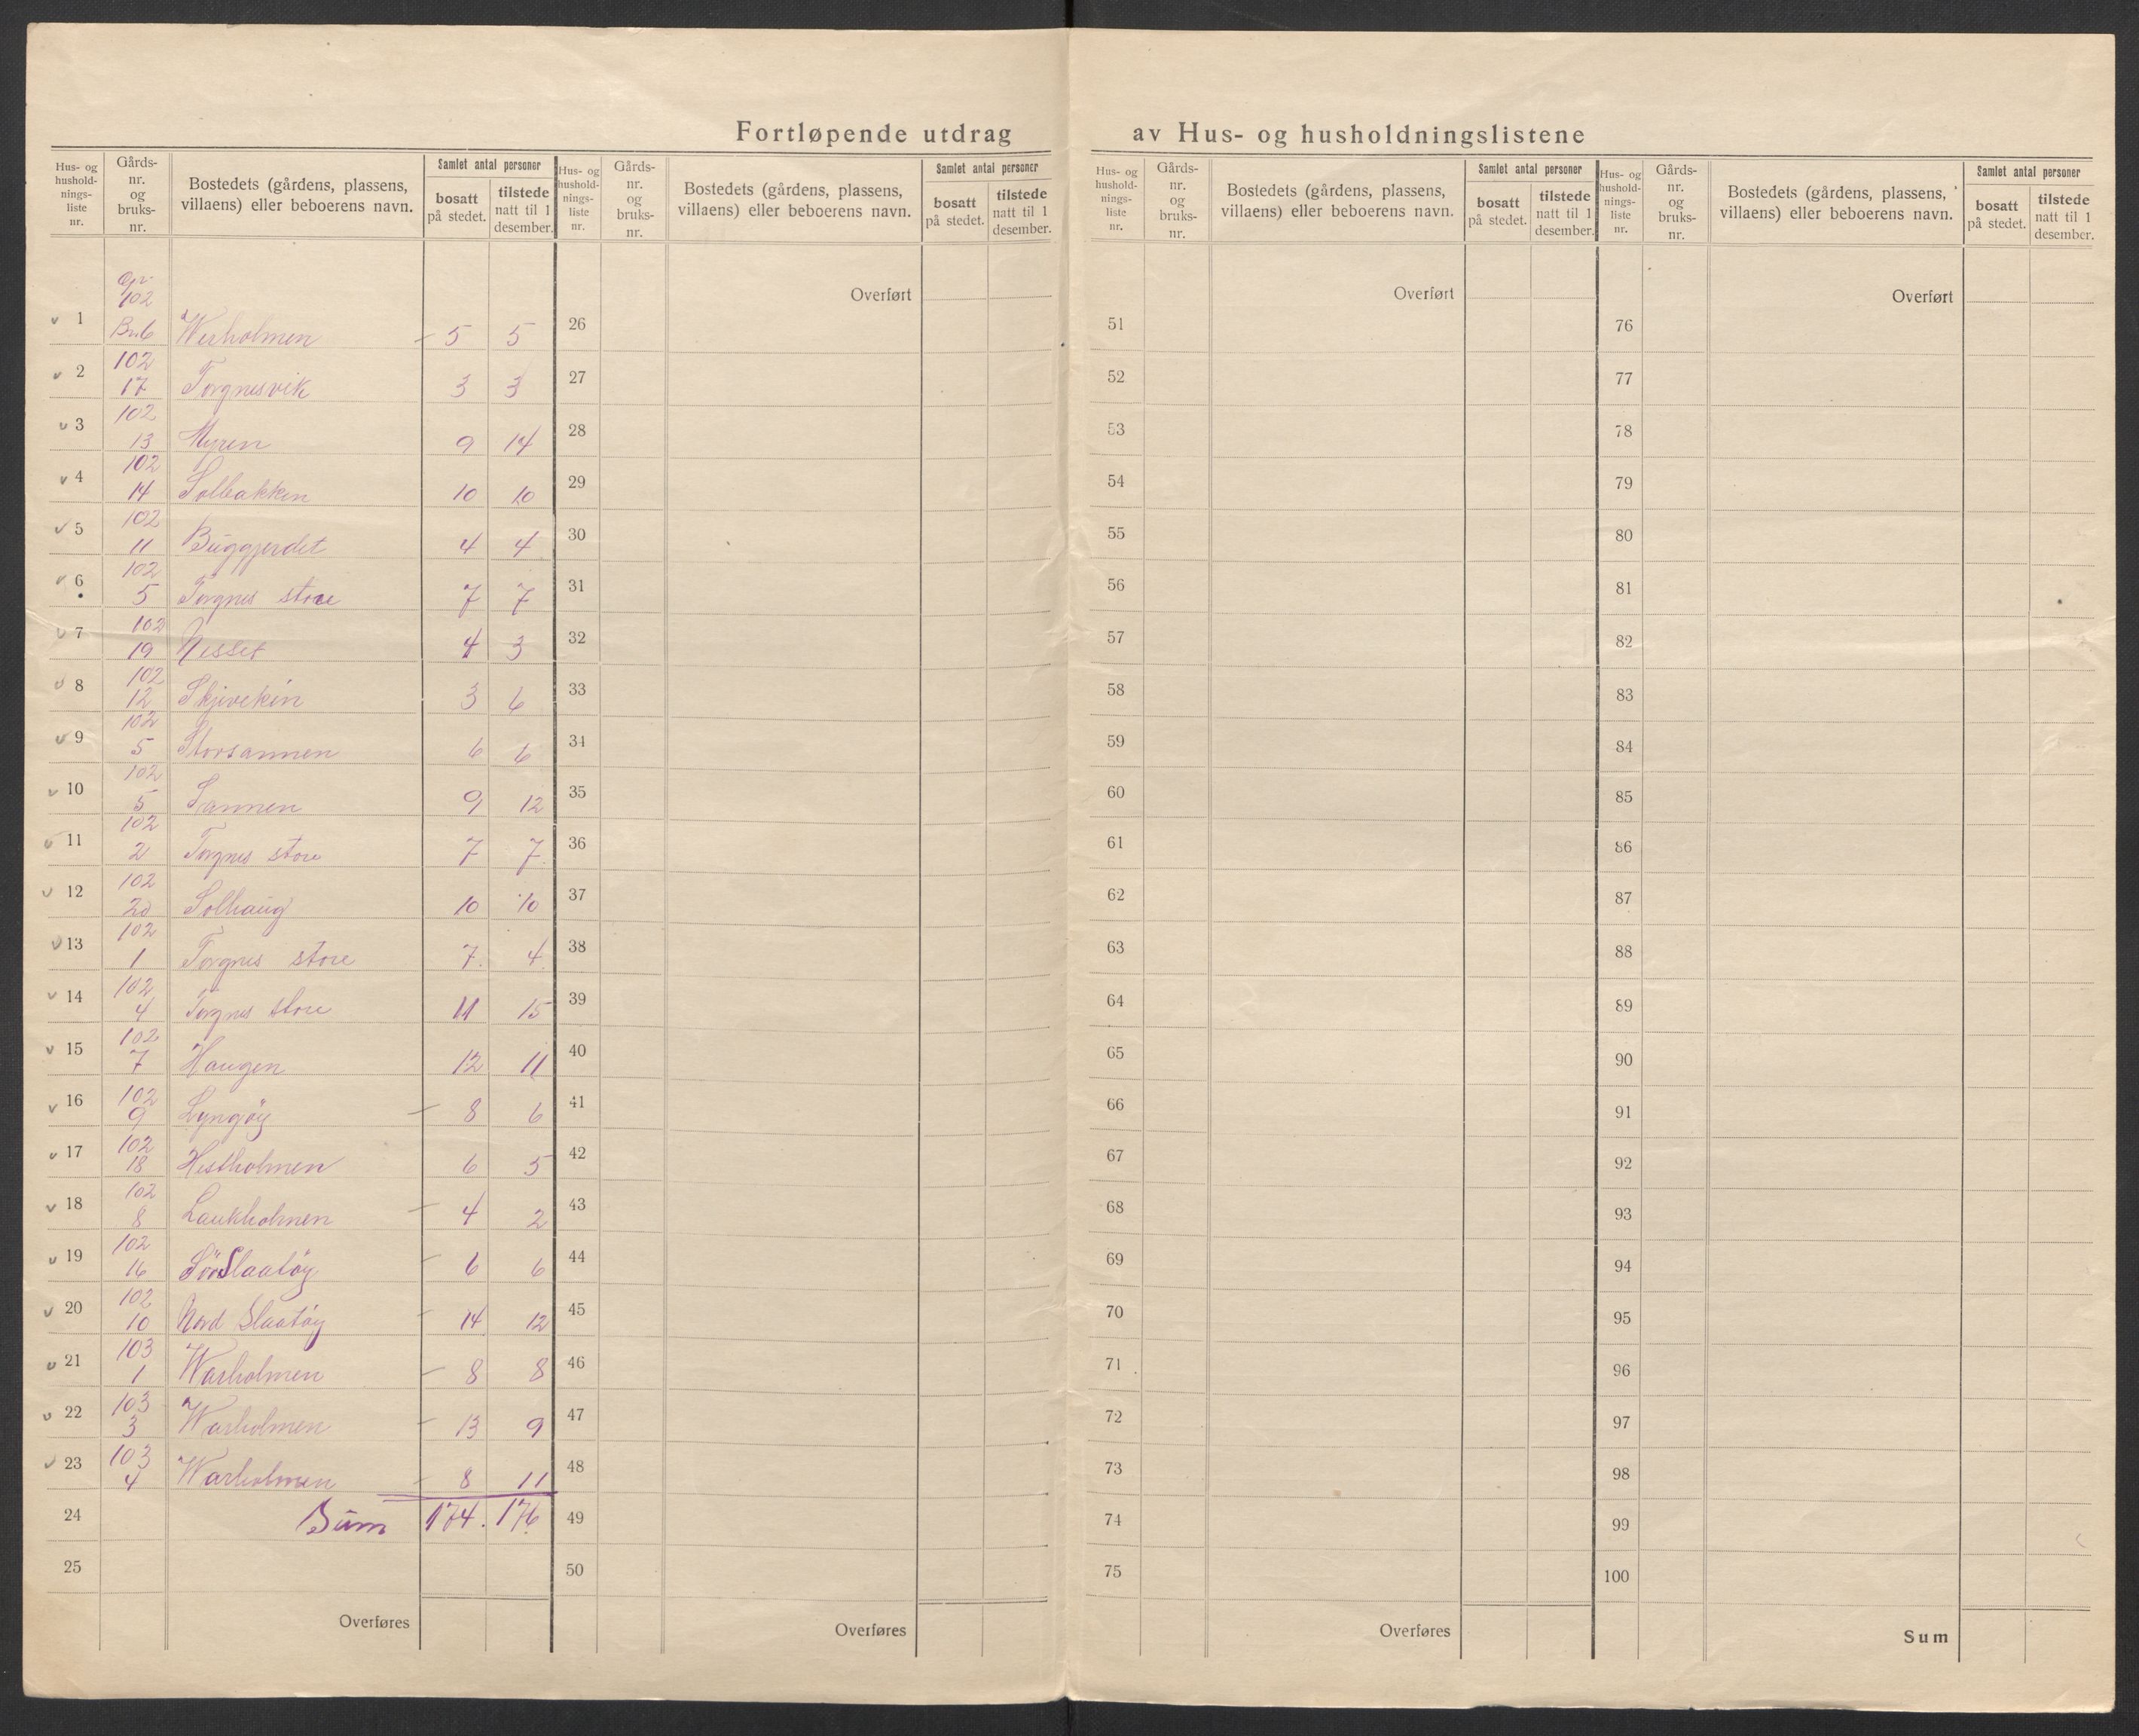 Fortløpende utdrag av Hus- og husholdningslistene
Hus- og husholdnings-liste nr. | Gårds-nr. og bruks-nr. | Bostedets (gårdens, plassens, villaens) eller beboerens navn. | Samlet antal personer | bosatt på stedet. | tilstede natt til 1 desember.
1 | Gnr 102 Bn. 6 | Wesholmen | 5 | 5
2 | 102 17 | Torgnesvik | 3 | 3
3 | 102 13 | Myren | 9 | 14
4 | 102 14 | Solbakken | 10 | 10
5 | 102 11 | Buggjerdet | 4 | 4
6 | 102 5 | Torgnes store | 7 | 7
7 | 102 19 | Nesset | 4 | 3
8 | 102 12 | Skjivekin | 3 | 6
9 | 102 5 | Storsannen | 6 | 6
10 | 102 5 | Sannen | 9 | 12
11 | 102 2 | Torgnes store | 7 | 7
12 | 102 20 | Solhaug | 10 | 10
13 | 102 1 | Torgnes store | 7 | 4
14 | 102 4 | Torgnes store | 11 | 15
15 | 102 7 | Haugen | 12 | 11
16 | 102 9 | Lyngöy | 8 | 6
17 | 102 18 | Hestholmen | 6 | 5
18 | 102 8 | Laukholmen | 4 | 2
19 | 102 16 | Sör Slaatöy | 6 | 6
20 | 102 10 | Nord Slaatöy | 14 | 12
21 | 103 1 | Warholmen | 8 | 8
22 | 103 3 | Warholmen | 13 | 9
23 | 103 4 | Warholmen | 8 | 11
24 | Sum | 174. | 176
25
Overføres
Hus- og husholdnings-liste nr. | Gårds-nr. og bruks-nr. | Bostedets (gårdens, plassens, villaens) eller beboerens navn. | Samlet antal personer | bosatt på stedet. | tilstede natt til 1 desember.
Overført
26
27
28
29
30
31
32
33
34
35
36
37
38
39
40
41
42
43
44
45
46
47
48
49
50
Overføres
Hus- og hushold-nings-liste nr. | Gårds-nr. og bruks-nr. | Bostedets (gårdens, plassens, villaens) eller beboerens navn. | Samlet antal personer | bosatt på stedet. | tilstede natt til 1 desember.
Overført
51
52
53
54
55
56
57
58
59
60
61
62
63
64
65
66
67
68
69
70
71
72
73
74
75
Overføres
Hus- og hushold-nings-liste nr. | Gårds-nr. og bruks-nr. | Bostedets (gårdens, plassens, villaens) eller beboerens navn. | Samlet antal personer | bosatt på stedet. | tilstede natt til 1 desember.
Overført
76
77
78
79
80
81
82
83
84
85
86
87
88
89
90
91
92
93
94
95
96
97
98
99
100
Sum